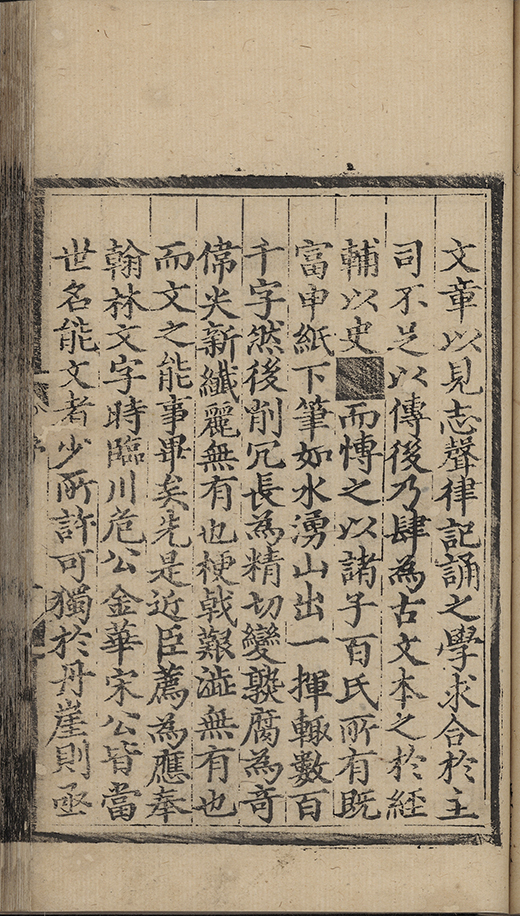 文章以見志聲律記誦之學求合於主
司不足以傳後乃肆為古文本之於經
輔以史而慱之以諸子百氏所有既
富申紙下筆如水湧山出一揮輙數百
千字然後削冗長為精切變熟腐為奇
偉尖新纖麗無有也梗戟艱澁無有也
而文之能事畢矣先是近臣薦為應奉
翰林文字時臨川危公金華宋公皆當
世名能文者少所許可獨於丹崖則亟